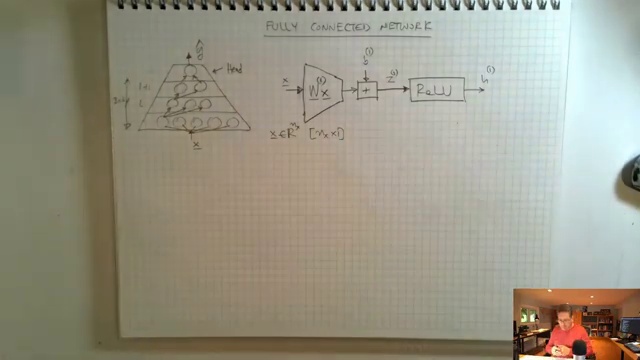 FULLY CONNECTED NETWORK
Head
L
x
x
W^(1) x
b^(1)
+
z^(1)
ReLU
h^(1)
x ∈ R^nx [nx × 1]